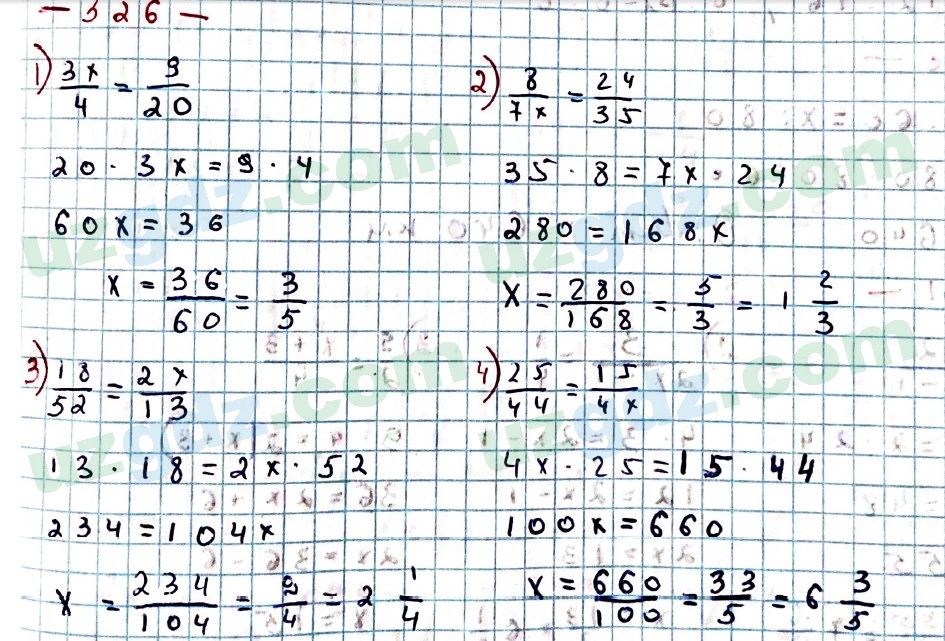 — 326 —
1) 3x/4 = 9/20
20 · 3x = 9 · 4
60x = 36
x = 36/60 = 3/5
2) 8/7x = 24/35
35 · 8 = 7x · 24
280 = 168x
x = 280/168 = 5/3 = 1 2/3
3) 18/52 = 2x/13
13 · 18 = 2x · 52
234 = 104x
x = 234/104 = 9/4 = 2 1/4
4) 25/44 = 15/4x
4x · 25 = 15 · 44
100x = 660
x = 660/100 = 33/5 = 6 3/5
uzgdz.com
uzgdz.com
uzgdz.com
uzgdz.com